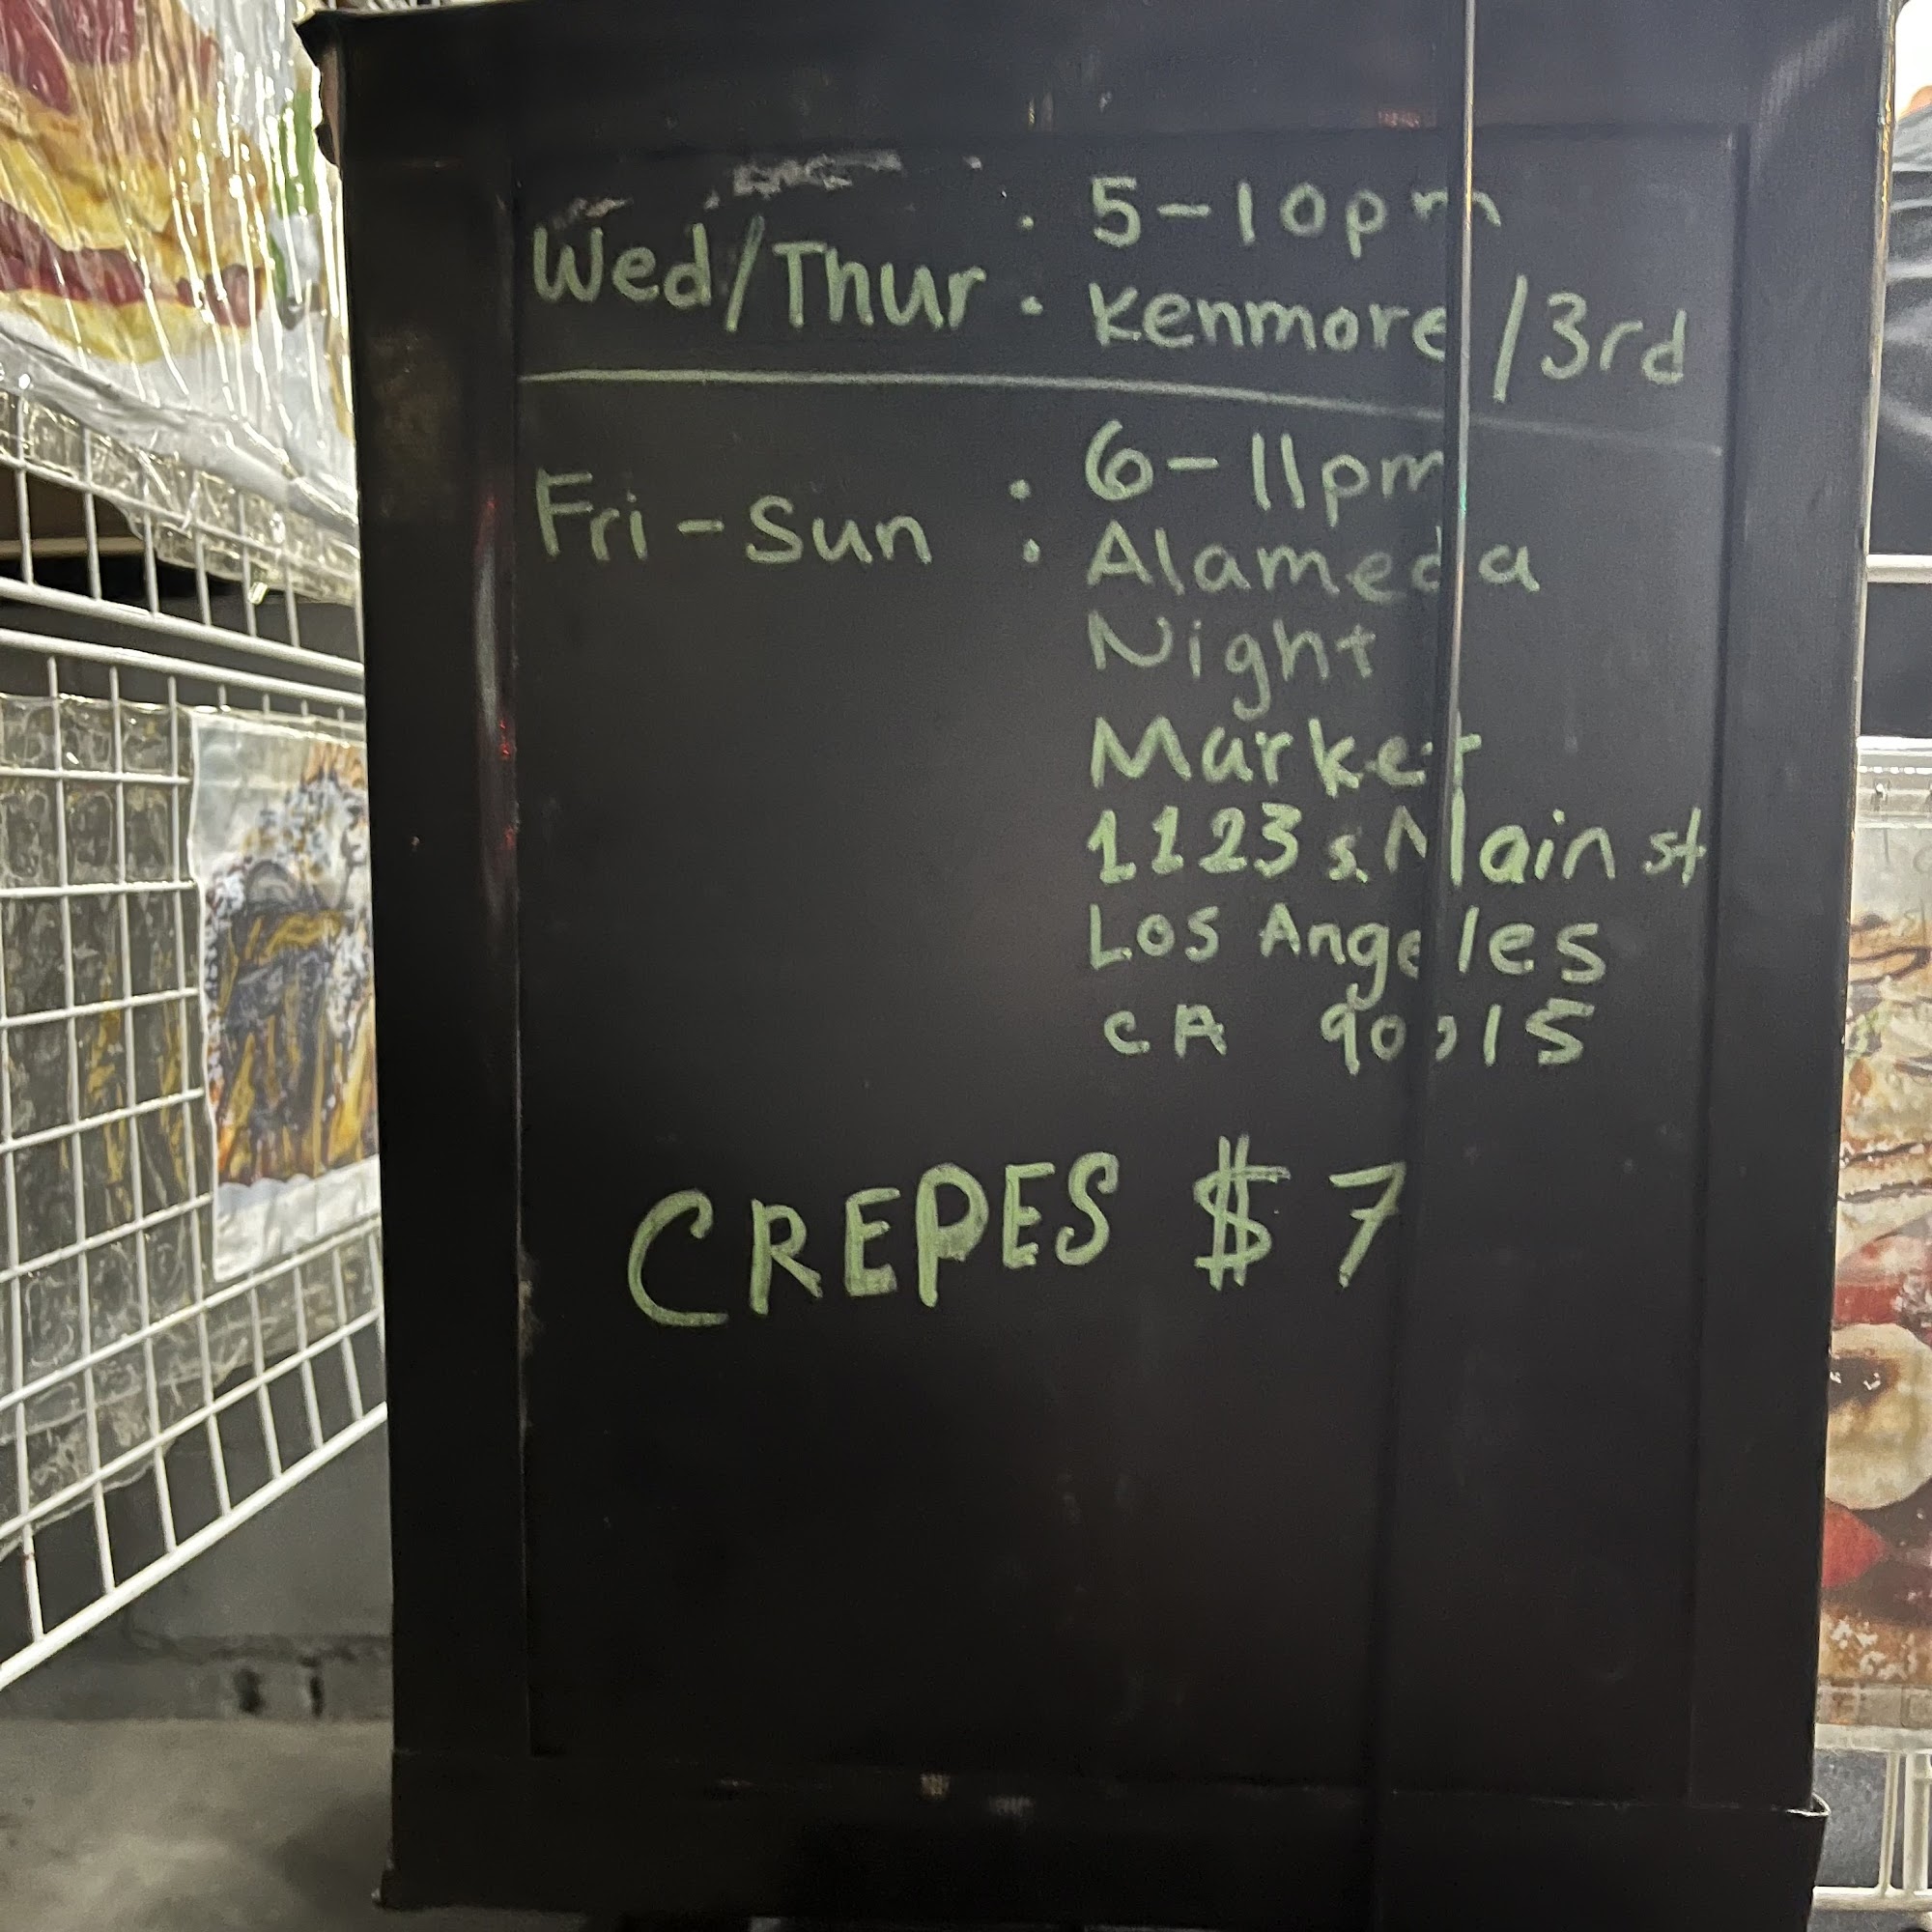 Wed/Thur : 5-10pm
Kenmore/3rd
Fri-Sun : 6-11pm
: Alameda
Night
Market
1123 s. Main st
Los Angeles
CA 90015
CREPES $7